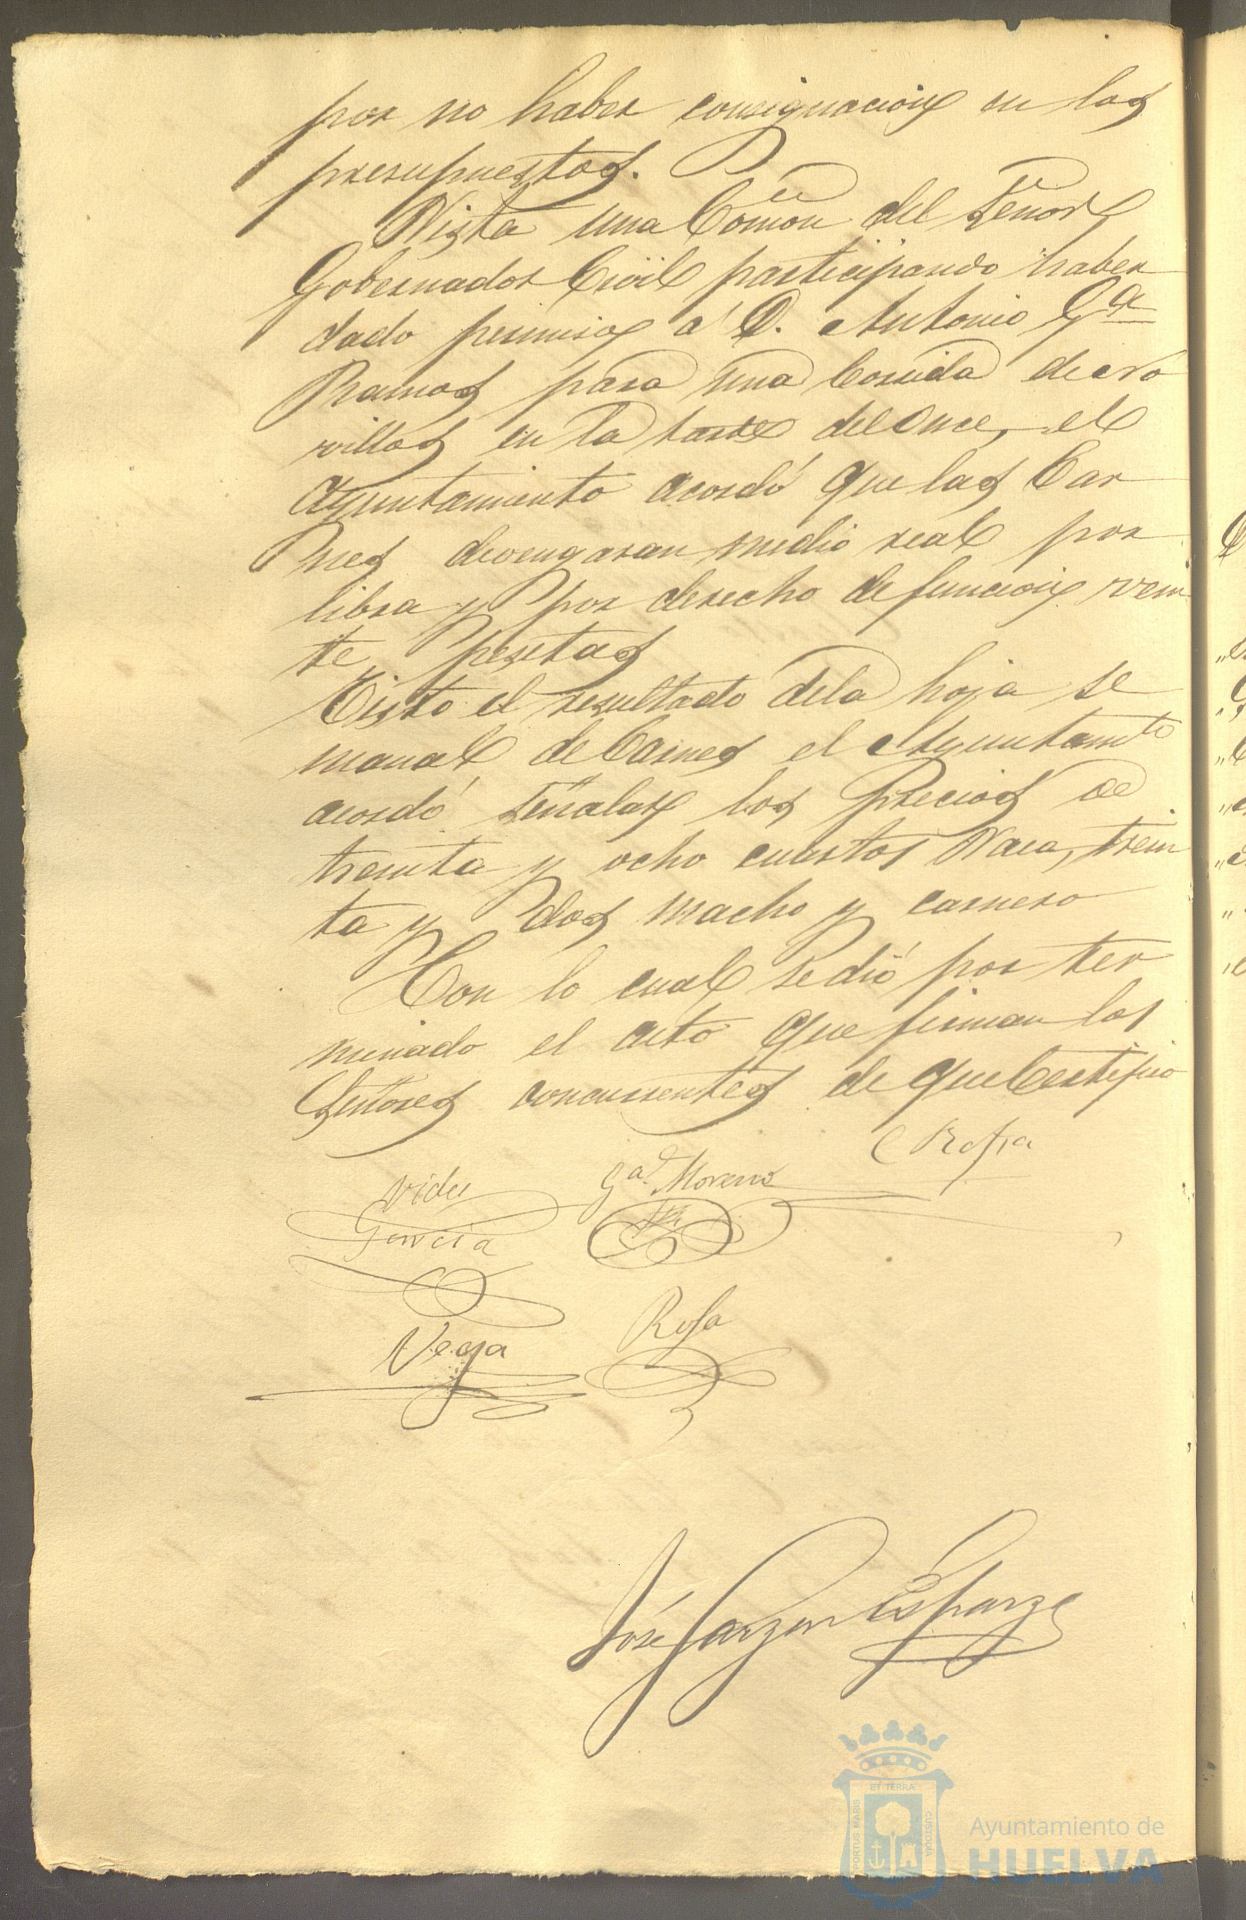 por no haber consignacion en los
presupuestos.
Vista una Comon del Señor
Gobernador Civil participando haber
dado permiso á D. Antonio Ga
Ramos para una Corrida de no
villos en la tarde del Once, el
Ayuntamiento acordó que las Car
nes devengaran medio real por
libra y por derecho de funcion vein
te pesetas
Visto el resultado de la hoja se
manal de Carnes el Ayuntamto
acordó señalar los precios de
treinta y ocho cuartos Vaca, trein
ta y dos macho y carnero
Con lo cual se dió por ter
minado el acto que firman los
Señores concurrentes de que Certifico
Garcia
Ga Moreno
Vega
José Garzon Esparza
ET TERRA
PORTUS MARIS
CUSTODIA
Ayuntamiento de
HUELVA